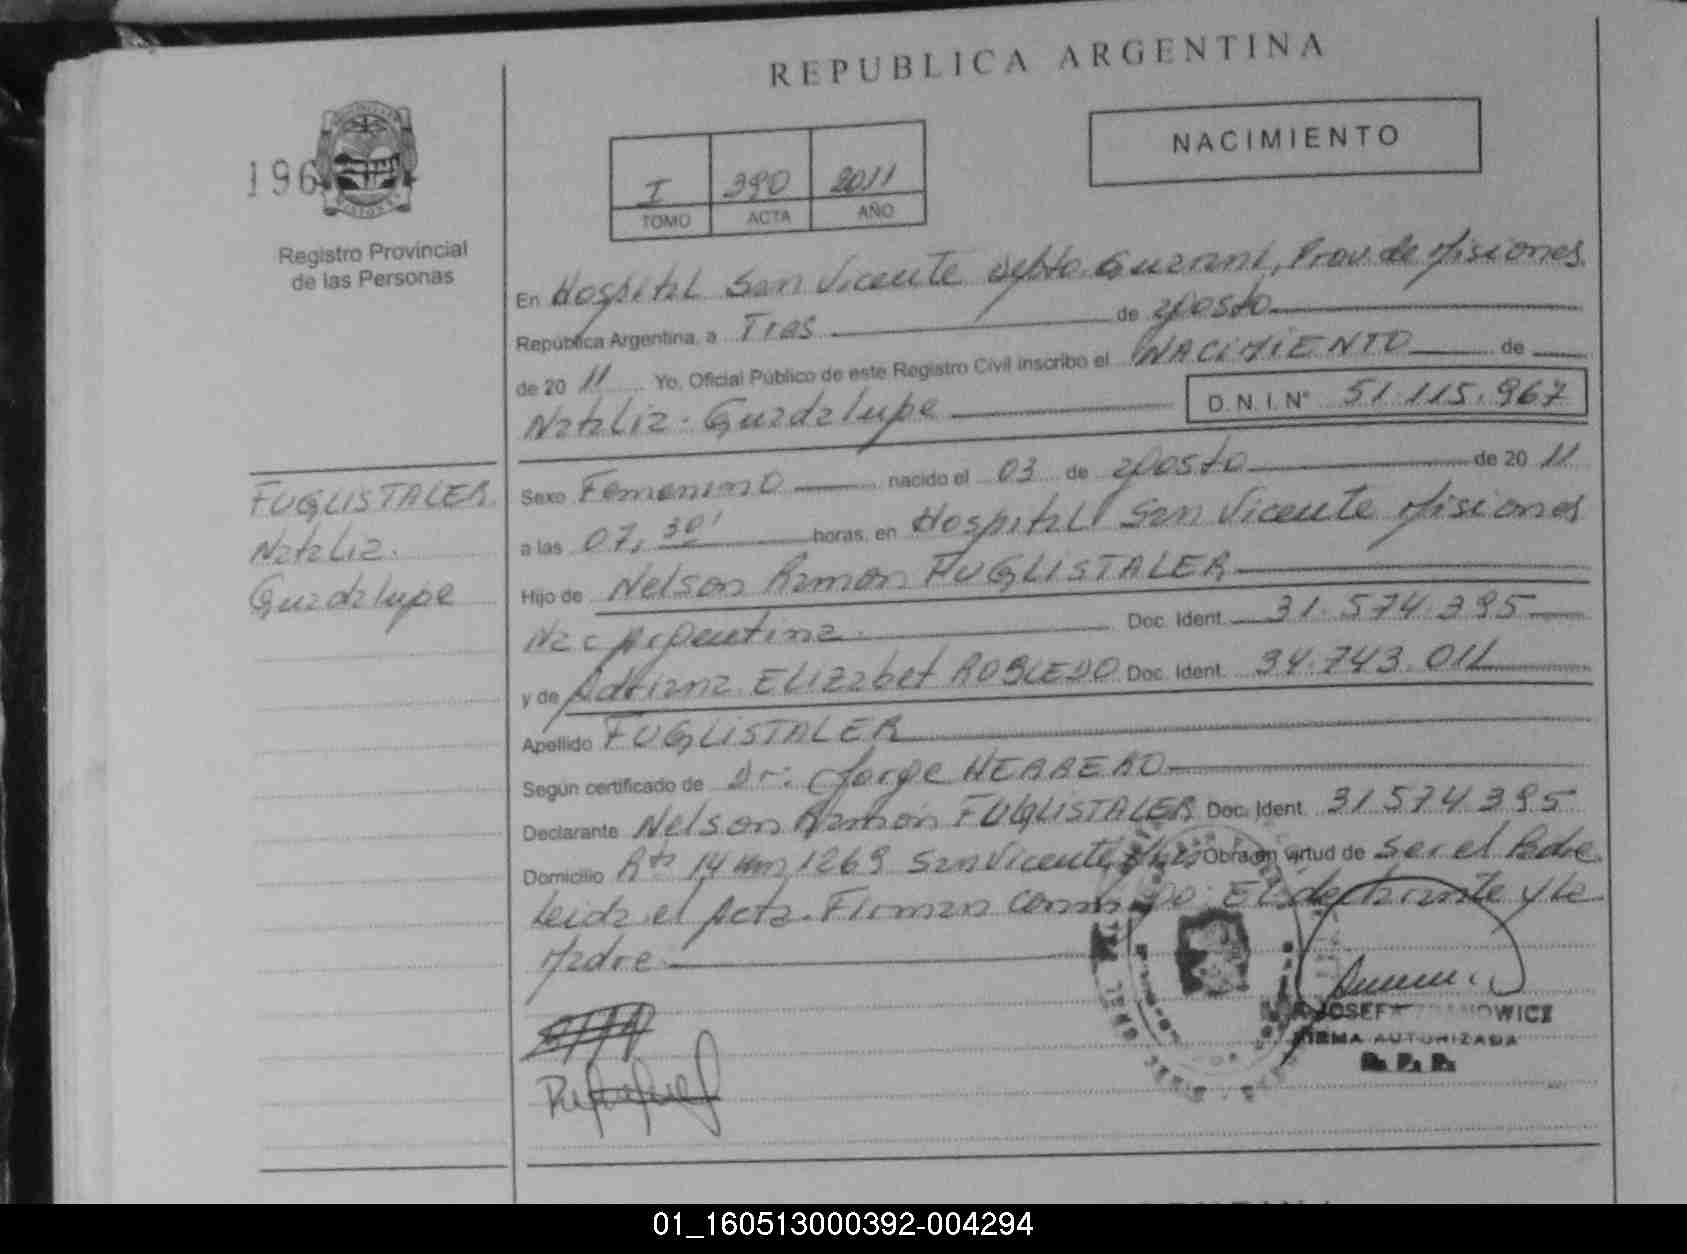 REPUBLICA ARGENTINA
NACIMIENTO
196
I 390 2011
TOMO ACTA AÑO
Registro Provincial
de las Personas
En Hospital San Vicente Dpto. Guarani, Prov. de Misiones
República Argentina, a Tres de agosto
de 20 11 Yo, Oficial Público de este Registro Civil inscribo el NACIMIENTO de
Natalia Guadalupe D.N.I.N° 51.115.967
FUGLISTALER
Natalia
Guadalupe
Sexo Femenino nacido el 03 de agosto de 20 11
a las 07,30' horas, en Hospital San Vicente Misiones
Hijo de Nelson Ramon FUGLISTALER
Nac Argentina Doc. Ident. 31.574.395
y de Adriana Elizabet ROBLEDO Doc. Ident. 34.743.011
Apellido FUGLISTALER
Según certificado de Dr: Jorge HERRERO
Declarante Nelson Ramón FUGLISTALER Doc. Ident. 31574395
Domicilio Rta 14 km 1269 San Vicente Mnes Obra en virtud de ser el Padre
Leida el Acta. Firman conmigo: El declarante y la
Madre
JOSEFA
FIRMA AUTORIZADA
R. P. P.
01_160513000392-004294